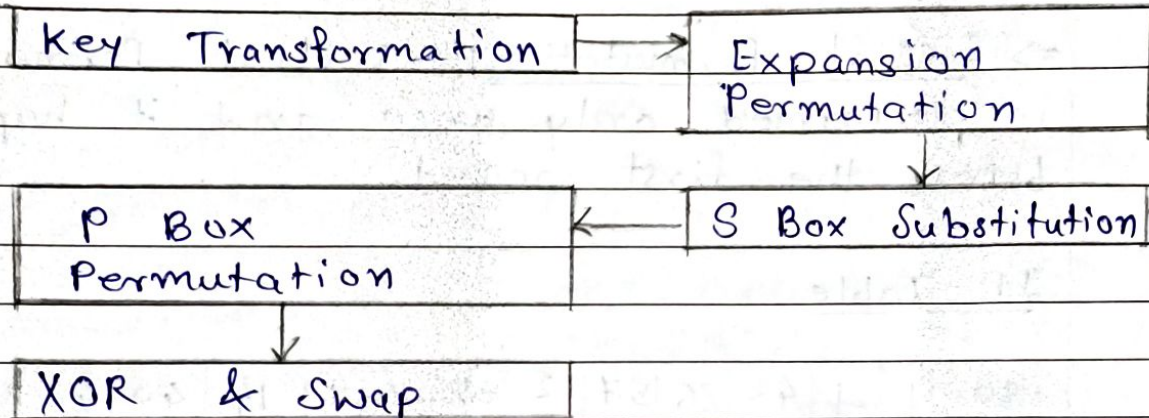 Key Transformation
Expansion
Permutation
S Box Substitution
P Box
Permutation
XOR & Swap